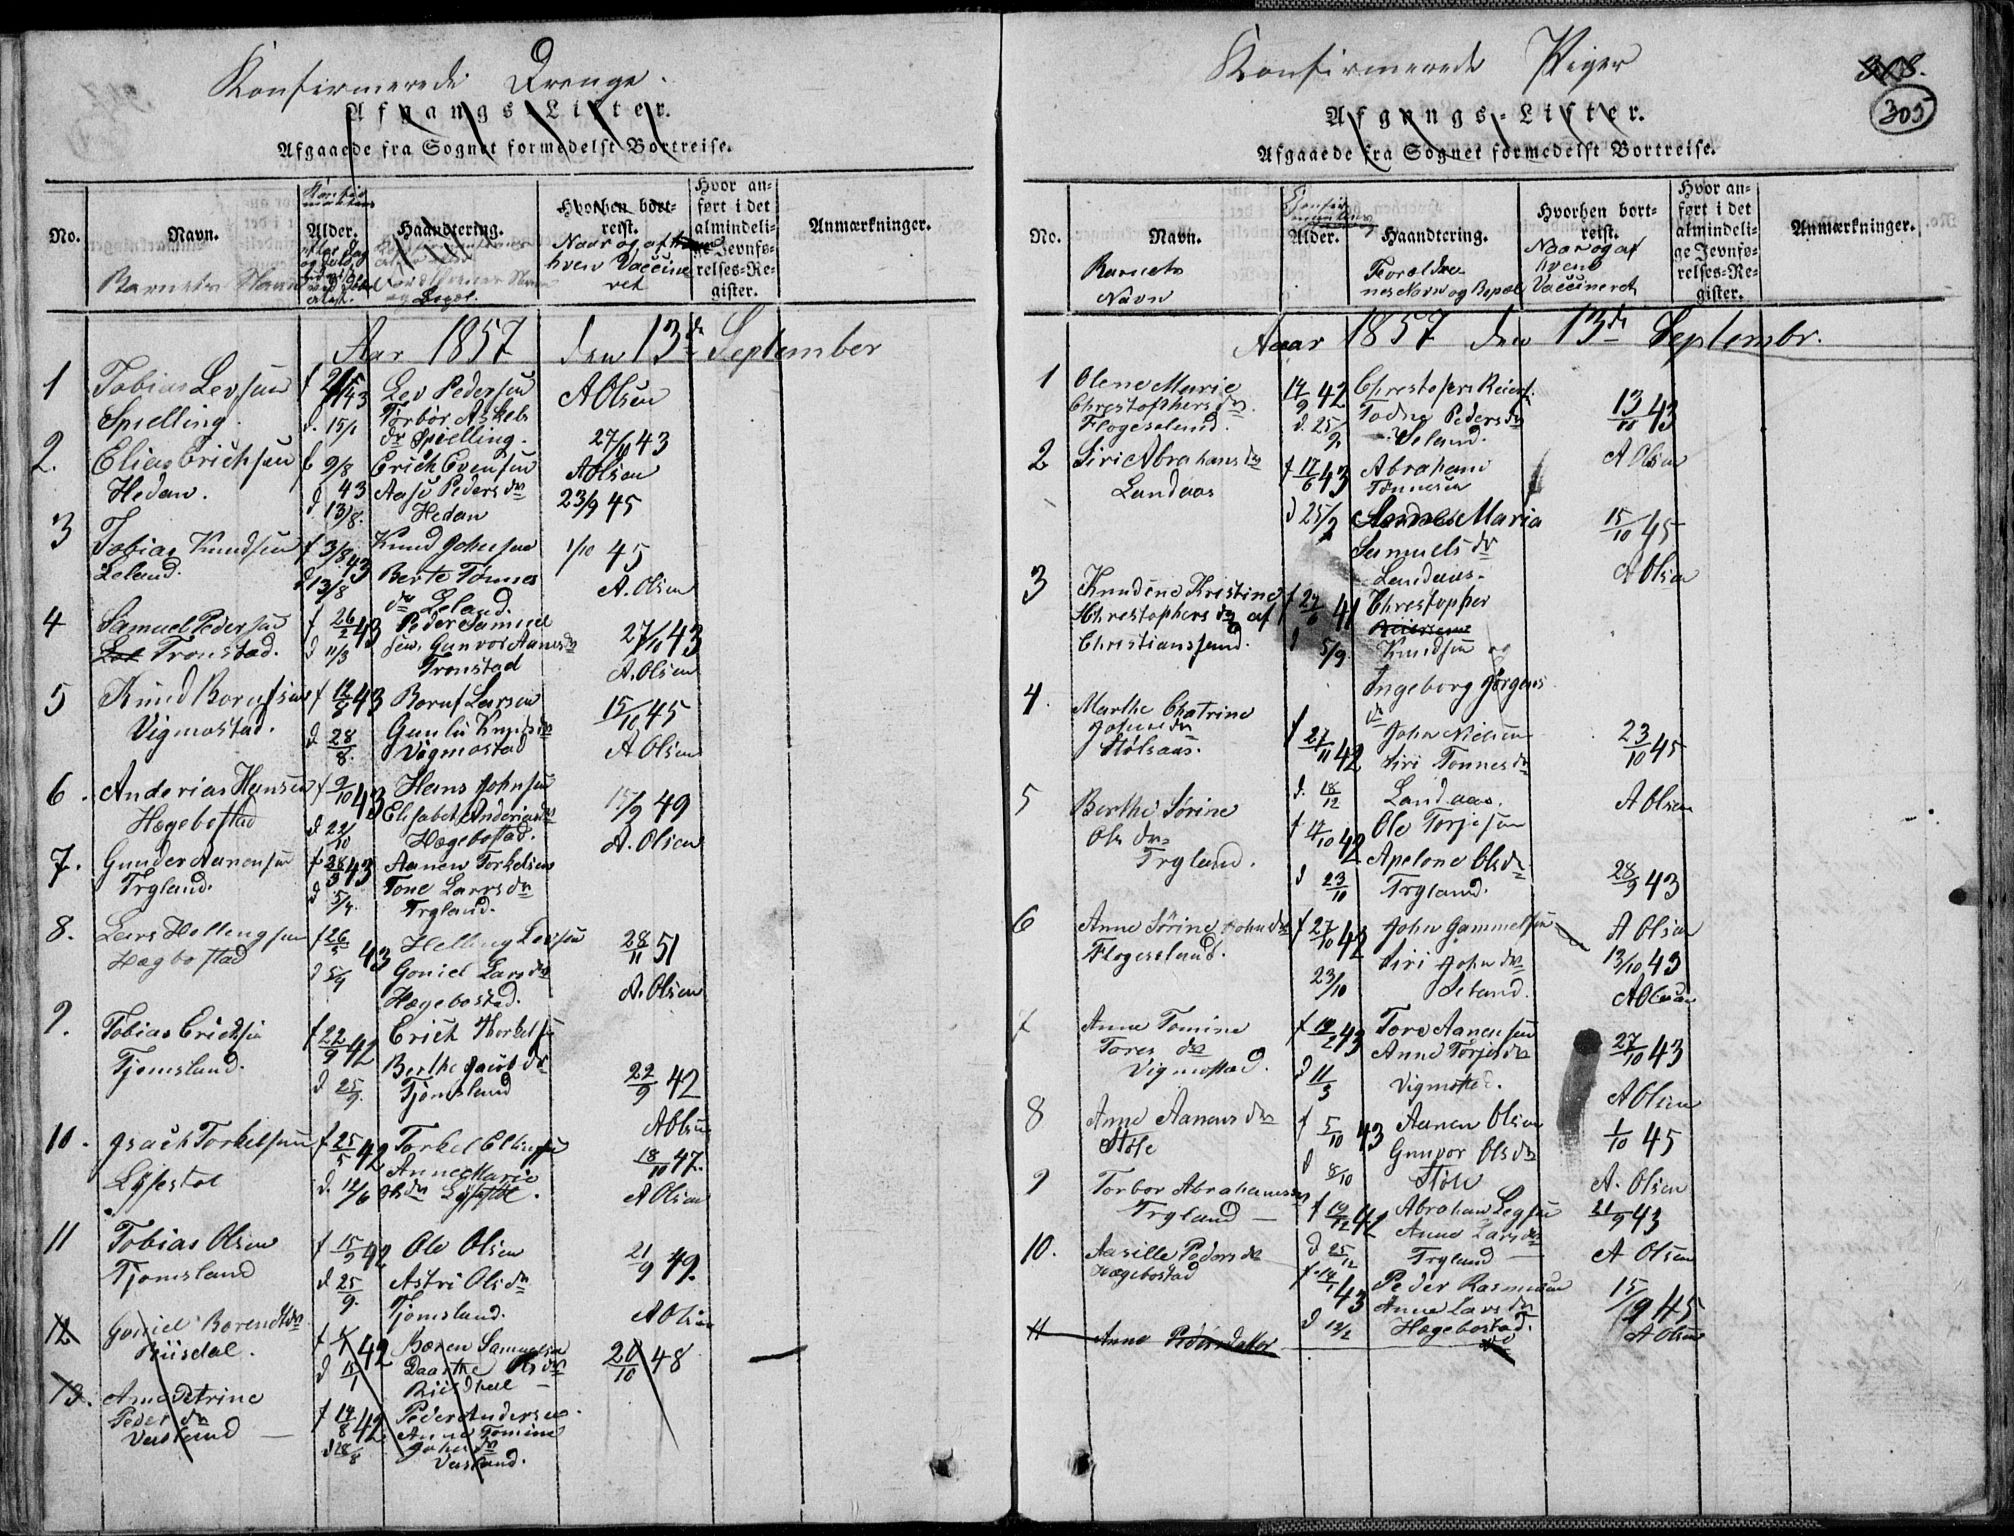 Konfirmerede Drenge.
Afgangs-Lister.
Afgaaede fra Sognet formedelst Bortreise.
No.
Navn.
Barnets Navn
Alder.
Haandtering.
og Bopæl.
Hvorhen bort-
reist.
Naar og af
hvem Vaccine
ret
Hvor an-
ført i det
almindeli-
ge Jevnfø-
relses-Re-
gister.
Anmærkninger.
Aar 1857 den 13de September
1
Tobias Levsen
Spielling.
d. 15/1
Lev Pedersen
Torbor Askels
dr Spielling.
A Olsen
27/9 43
2.
Elias Erichsen
Hedan.
f 9/8
43
d 13/8.
Erich Evensen
Aase Pedersdr
Hedan
A Olsen
23/9 45
3
Tobias Knudsen
Leland.
f 3/8 43
d 13/8
Knud Johnsen
Berte Tønnes
dr Leland.
1/10 45
A. Olsen
4
Samuel Pedersen
Tronstad.
f 26/2 43
d 11/3
Peder Samuel
sen, Gunvor Aanensdr
Tronstad
27/10 43
A. Olsen
5
Knud Borufsen
Vigmostad.
f 12/8 43
d 28/8.
Boruf Larsen
Gunlu Knudsdr
Vigmostad
15/10 45
A Olsen
6.
Anderias Hansen
Hægebostad
f 9/10 43
d 22/10
Hans Johnsen
Elisabet Anderiasdr
Hægebostad.
15/9 49
A. Olsen
7.
Gunder Aanensen
Trgland.
f 28/3 43
d 5/4.
Aanen Torkelsen
Tone Larsdr
Trgland.
8.
Lars Hellengsen
Hægbostad
f 26/3 43
d 5/4
Helling Levsen
Goniel Larsdr
Hægebostad.
28/11 51
A. Olsen
9.
Tobias Erichsen
Tjomsland.
f 22/9 42
d 25/9.
Erich Thorkelsen
Berthe Jacobdr
Tjomsland
22/9 42
A Olsen
10.
Isach Torkelsen
Lyfestøl
f 25/5 42
d. 12/6
Torkel Ellingsen
Anne Marie
Olsdr Lyfestøl.
18/10 47.
A Olsen
11
Tobias Olsen
Tjomsland
f 15/9 42
d 25/9.
Ole Olsen
Astri Olsdr
Tjomsland.
21/9 49.
A Olsen
12
Goniel Borendtsdr
Riisdal.
42
d 15/1
Bæren Samuelsen
Daarthe Olsdr
20/10 48
13.
Anne Petrine
Pedersdr
Versland
f 14/8 42
d 28/8
Peder Andersen.
Anne Tomine
Johnsdr
Versland.
Konfirmerede Piger
308.
305
Afgangs-Lister.
Afgaaede fra Sognet formedelst Bortreise.
No.
Navn.
Barnets
Navn
Alder.
Haandtering.
Forældre
nes Navn og Bopæl
Hvorhen bort-
reist.
Naar og af
hvem
Vaccineret
Hvor an-
ført i det
almindeli-
ge Jevnfø-
relses-Re-
gister.
Anmærkninger.
Aar 1857 den 13de Septembr.
1
Olene Marie
Chrestophersdr.
Flogeseland.
14/9 42
d. 25/9
Chrestopers Reiers.
Todne Pedersdr
Seland.
13/10 43
A Olsen
2
Siri Abrahamsdr
Landaas
f 17/6 43
d 25/7
Abraham
Tønnesen
Maria
Samuelsdr
Landaas.
15/10 45
A Olsen
3
Knudene Kristine
Chrestophersdr af
Christianssund.
f 27/6 41
d 5/9.
Chrestopher
Knudsen og
Ingeborg Jørgens
dr
4.
Marthe Chatrine
Johnsdr
Stølsaas.
f 27/11 42
d. 18/12
John Nielsen
Siri Tønnesdr
Landaas.
23/10 45
A Olsen
5
Berthe Sørine
Olsdr
Trgland.
f 14/10 42
d 23/10
Ole Torjesen
Apelone Olsdr
Trgland.
28/9 43
A Olsen
6
Anne Sørine Johnsdr
Flogeseland.
f 27/10 42
23/10
John Gammelsen
Siri Johnsdr
Seland.
13/10 43
A Olsen
7
Anne Tomine
Toresdr
Vigmostad.
f 19/2 43
d 11/3
Tore Aanensen
Anne Torjesdr
Vigmostad.
27/10 43
A Olsen
8
Anne Aanensdr
Støle
f 5/10 43
d 8/10
Aanen Olsen
Gunvor Olsdr
Støle
1/10 45
A. Olsen
9
Torbor Abrahamsdr
Trgland
f 19/12 42
d 25/12
Abraham Legsen
Anne Larsdr
Trgland
21/9 43
A Olsen
10.
Aasille Pedersdr
Hægebostad
f 14/1 43
d 12/2
Peder Rasmusen
Anne Larsdr
Hægebostad.
15/9 45
A Olsen
11
Anne Pedersdatter